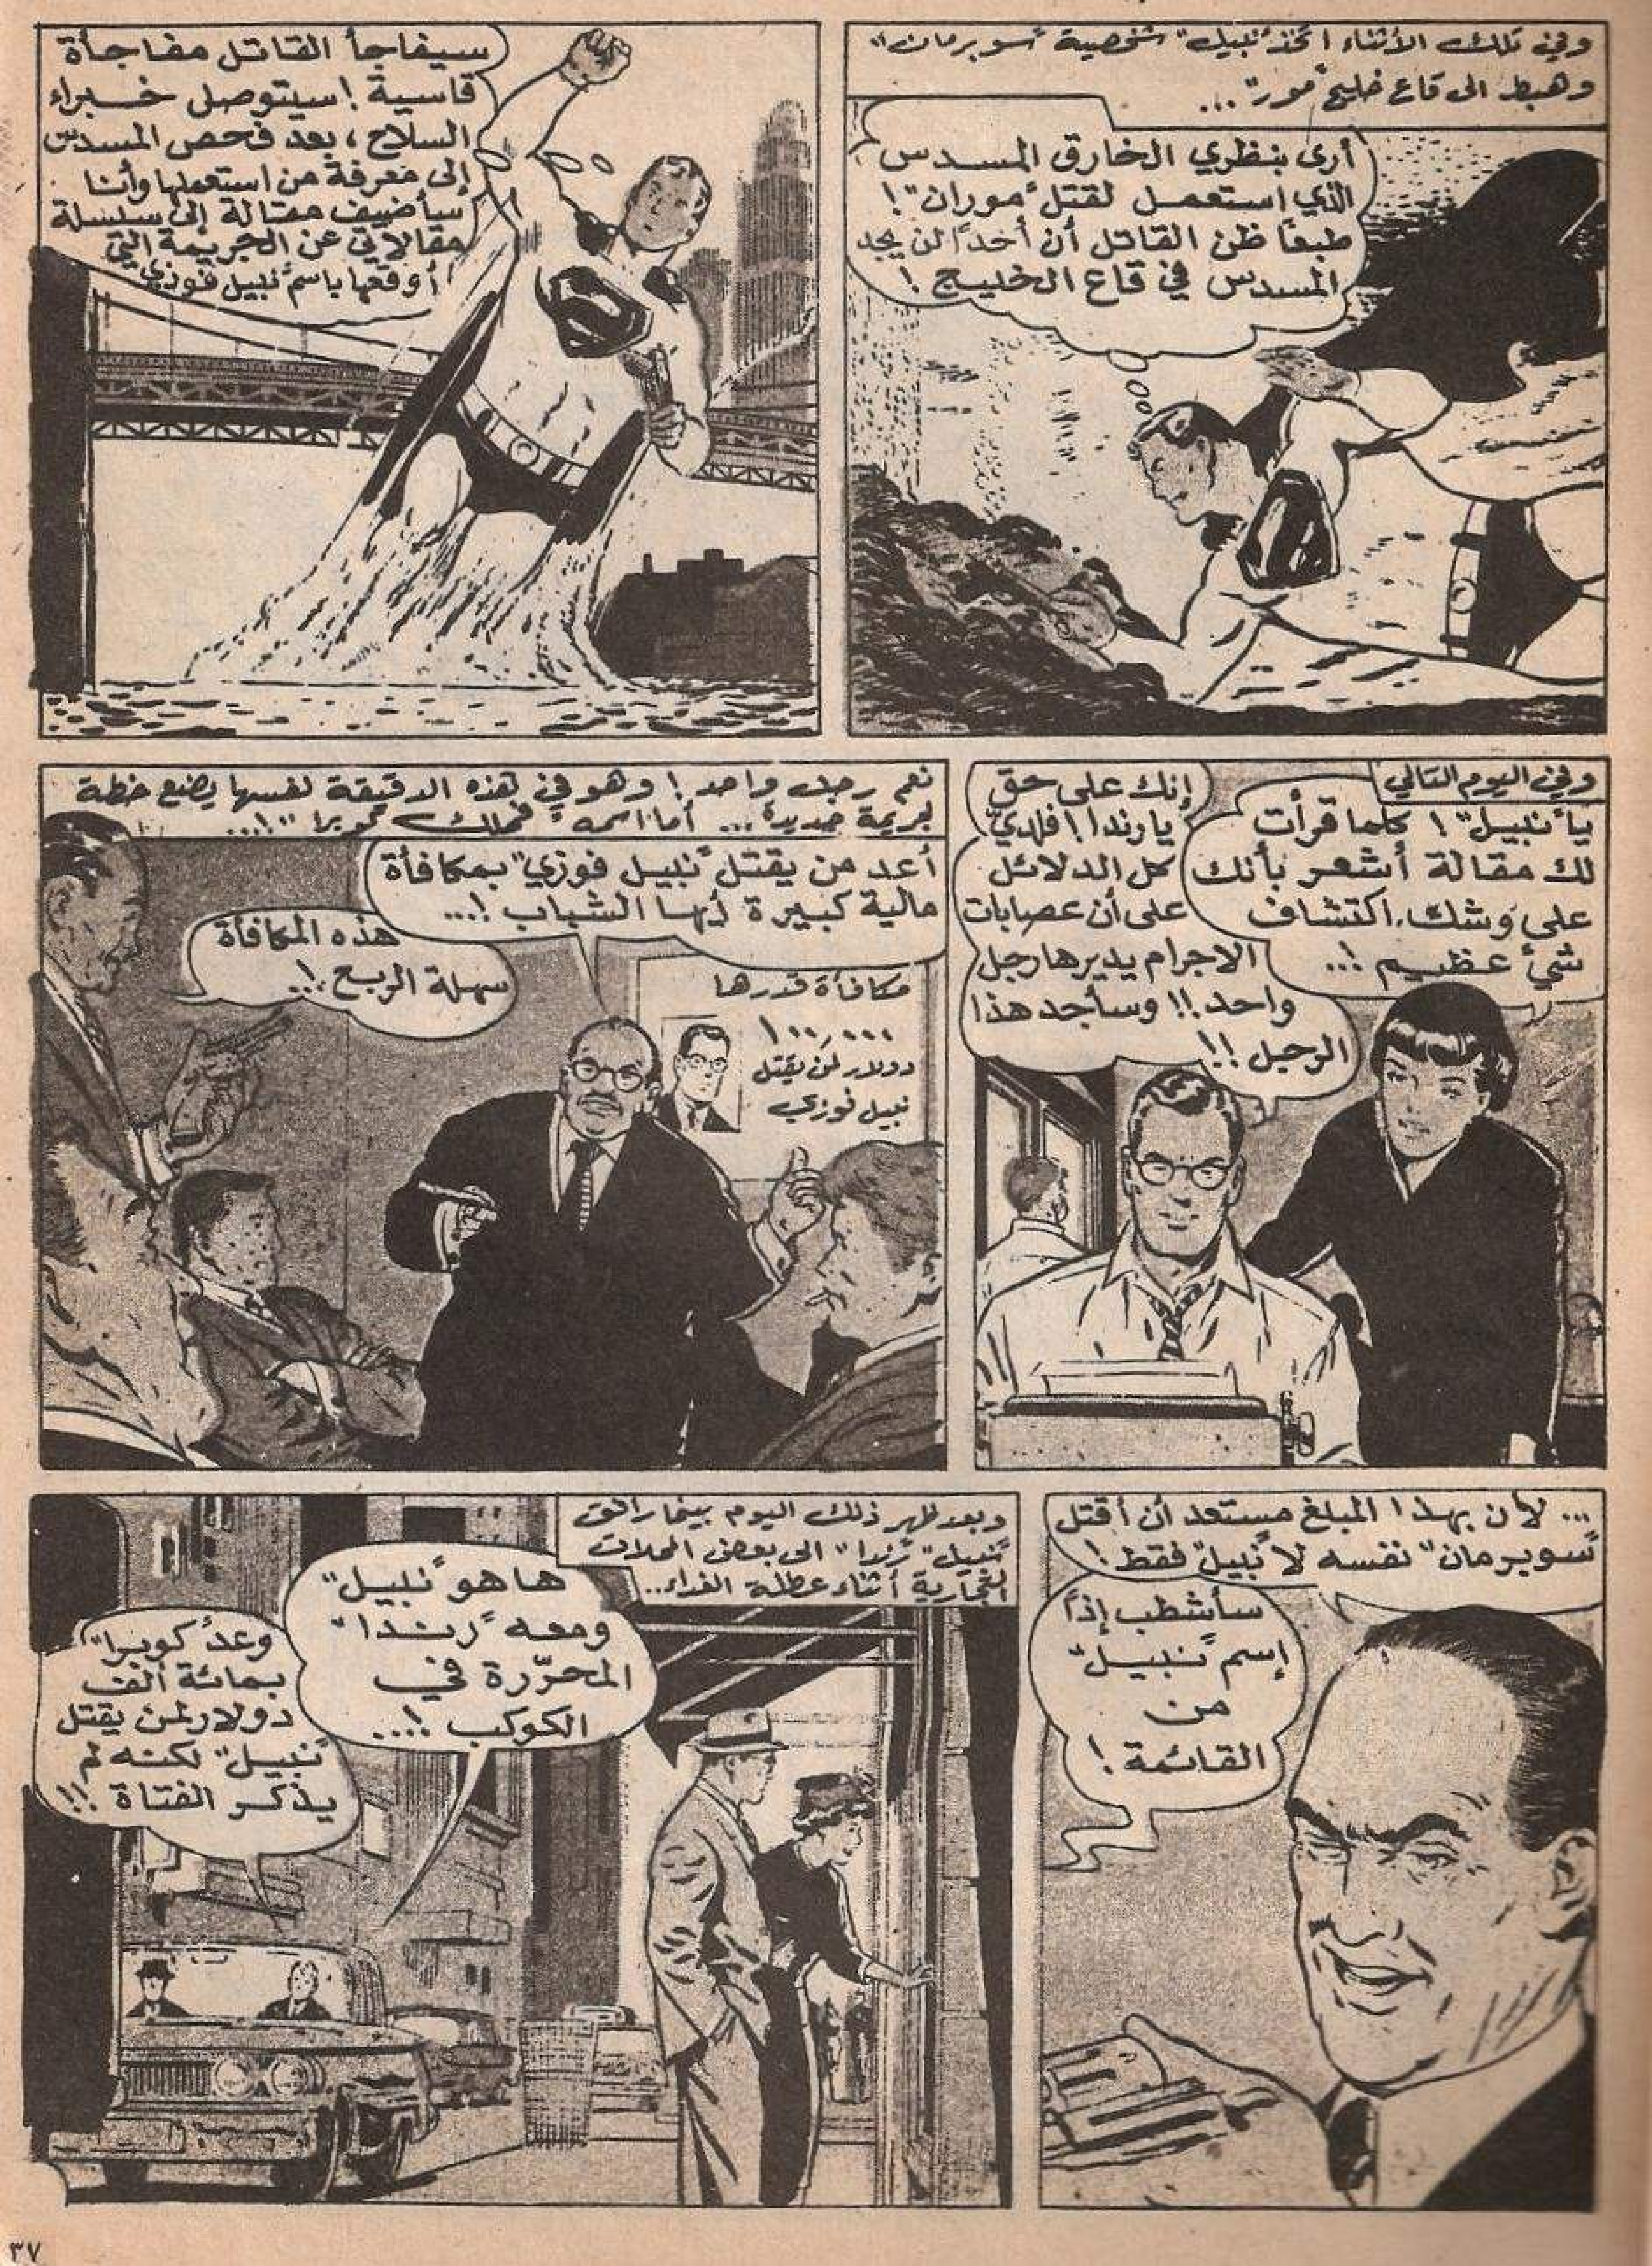 وفي تلك الأثناء اتخذ "نبيل" شخصية "سوبرمان"
وهبط الى قاع خليج "مور"...
أرى بنظري الخارق المسدس
الذي استعمل لقتل "موران"!
طبعًا ظن القاتل أن أحدًا لن يجد
المسدس في قاع الخليج!
سيفاجأ القاتل مفاجأة
قاسية! سيتوصل خبراء
السلاح، بعد فحص المسدس
إلى معرفة من استعملها وأنا
سأضيف مقالة إلى سلسلة
مقالاتي عن الجريمة التي
أوقعها باسم "نبيل فوزي"
وفي اليوم التالي
يا "نبيل"! كلما قرأت
لك مقالة أشعر بأنك
على وشك اكتشاف
شيء عظيم!..
إنك على حق
يا رندا! فلدي
كل الدلائل
على أن عصابات
الاجرام يديرها رجل
واحد!! وسأجد هذا
الرجل!!
نعم رجل واحد! وهو في هذه الدقيقة نفسها يضع خطة
لجريمة جديدة... أما اسمه "فملك كوبرا"!...
أعد من يقتل "نبيل فوزي" بمكافأة
مالية كبيرة أيها الشباب!...
هذه المكافأة
سهلة الربح!..
مكافأة قدرها
١٠٠,٠٠٠
دولار لمن يقتل
نبيل فوزي
... لأن بهذا المبلغ مستعد أن أقتل
"سوبرمان" نفسه لا "نبيل" فقط!
سأشطب إذًا
إسم "نبيل"
من
القائمة!
وبعد ظهر ذلك اليوم بينما رافق
"نبيل" "رندا" الى بعض المحلات
التجارية أثناء عطلة الغداء..
ها هو "نبيل"
ومعه "رندا"
المحرّرة في
الكوكب!...
وعد "كوبرا"
بمائة ألف
دولار لمن يقتل
"نبيل" لكنه لم
يذكر الفتاة!!
٣٧